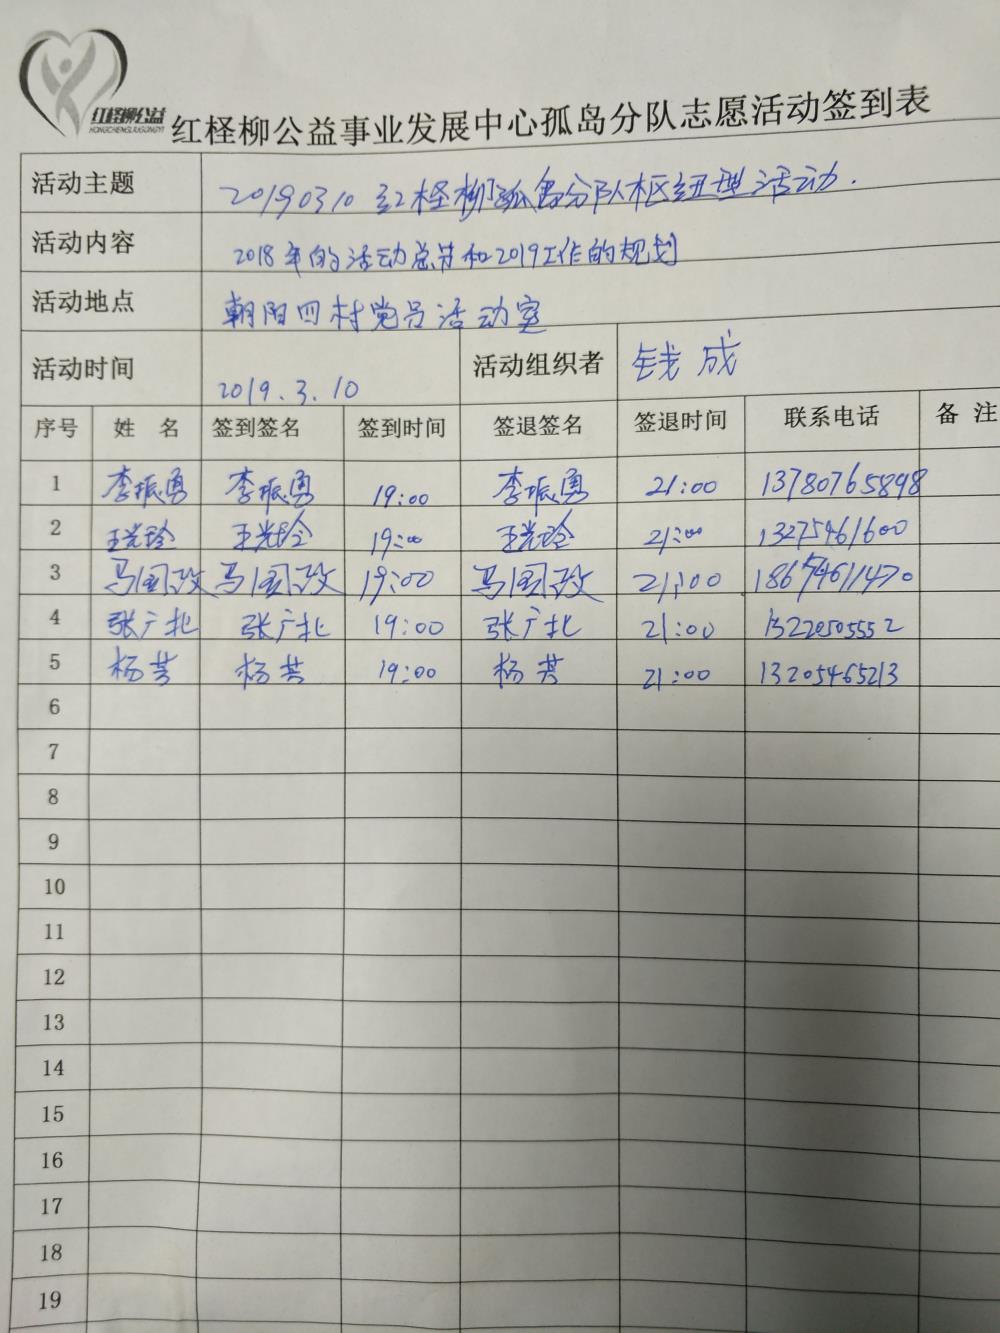 红柽柳公益
HONGCHENGLIUGONGYI
红柽柳公益事业发展中心孤岛分队志愿活动签到表
活动主题 20190310 红柽柳孤岛分队枢纽型活动.
活动内容 2018年的活动总结和2019工作的规划
活动地点 朝阳四村党员活动室
活动时间 2019.3.10 活动组织者 钱成
序号 姓 名 签到签名 签到时间 签退签名 签退时间 联系电话 备 注
1 李振勇 李振勇 19:00 李振勇 21:00 13780765898
2 王光玲 王光玲 19:00 王光玲 21:00 13275461600
3 马国政 马国政 19:00 马国政 21:00
4 张广北 张广北 19:00 张广北 21:00 13220505552
5 杨芸 杨芸 19:00 杨芸 21:00 13205465213
6
7
8
9
10
11
12
13
14
15
16
17
18
19